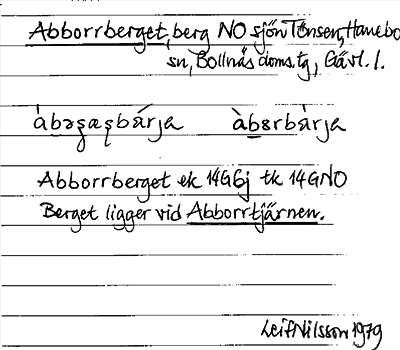 Abborrberget, berg NO sjön Tönsen, Hanebo
sn, Bollnäs doms.tg, Gävl. l.
àbɘʂæʂbárja àbɘrbárja
Abborrberget ek 14G6j tk 14GNO
Berget ligger vid Abborrtjärnen.
Leif Nilsson 1979